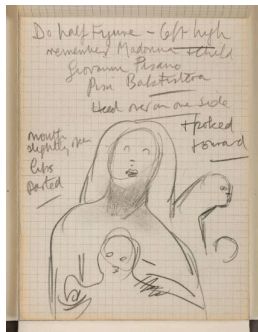 Do half figure - left high
remember Madonna & child
Giovanni Pisano
Pisa Baptistera
Head over on one side
+ poked
forward
mouth
slightly open
lips
parted